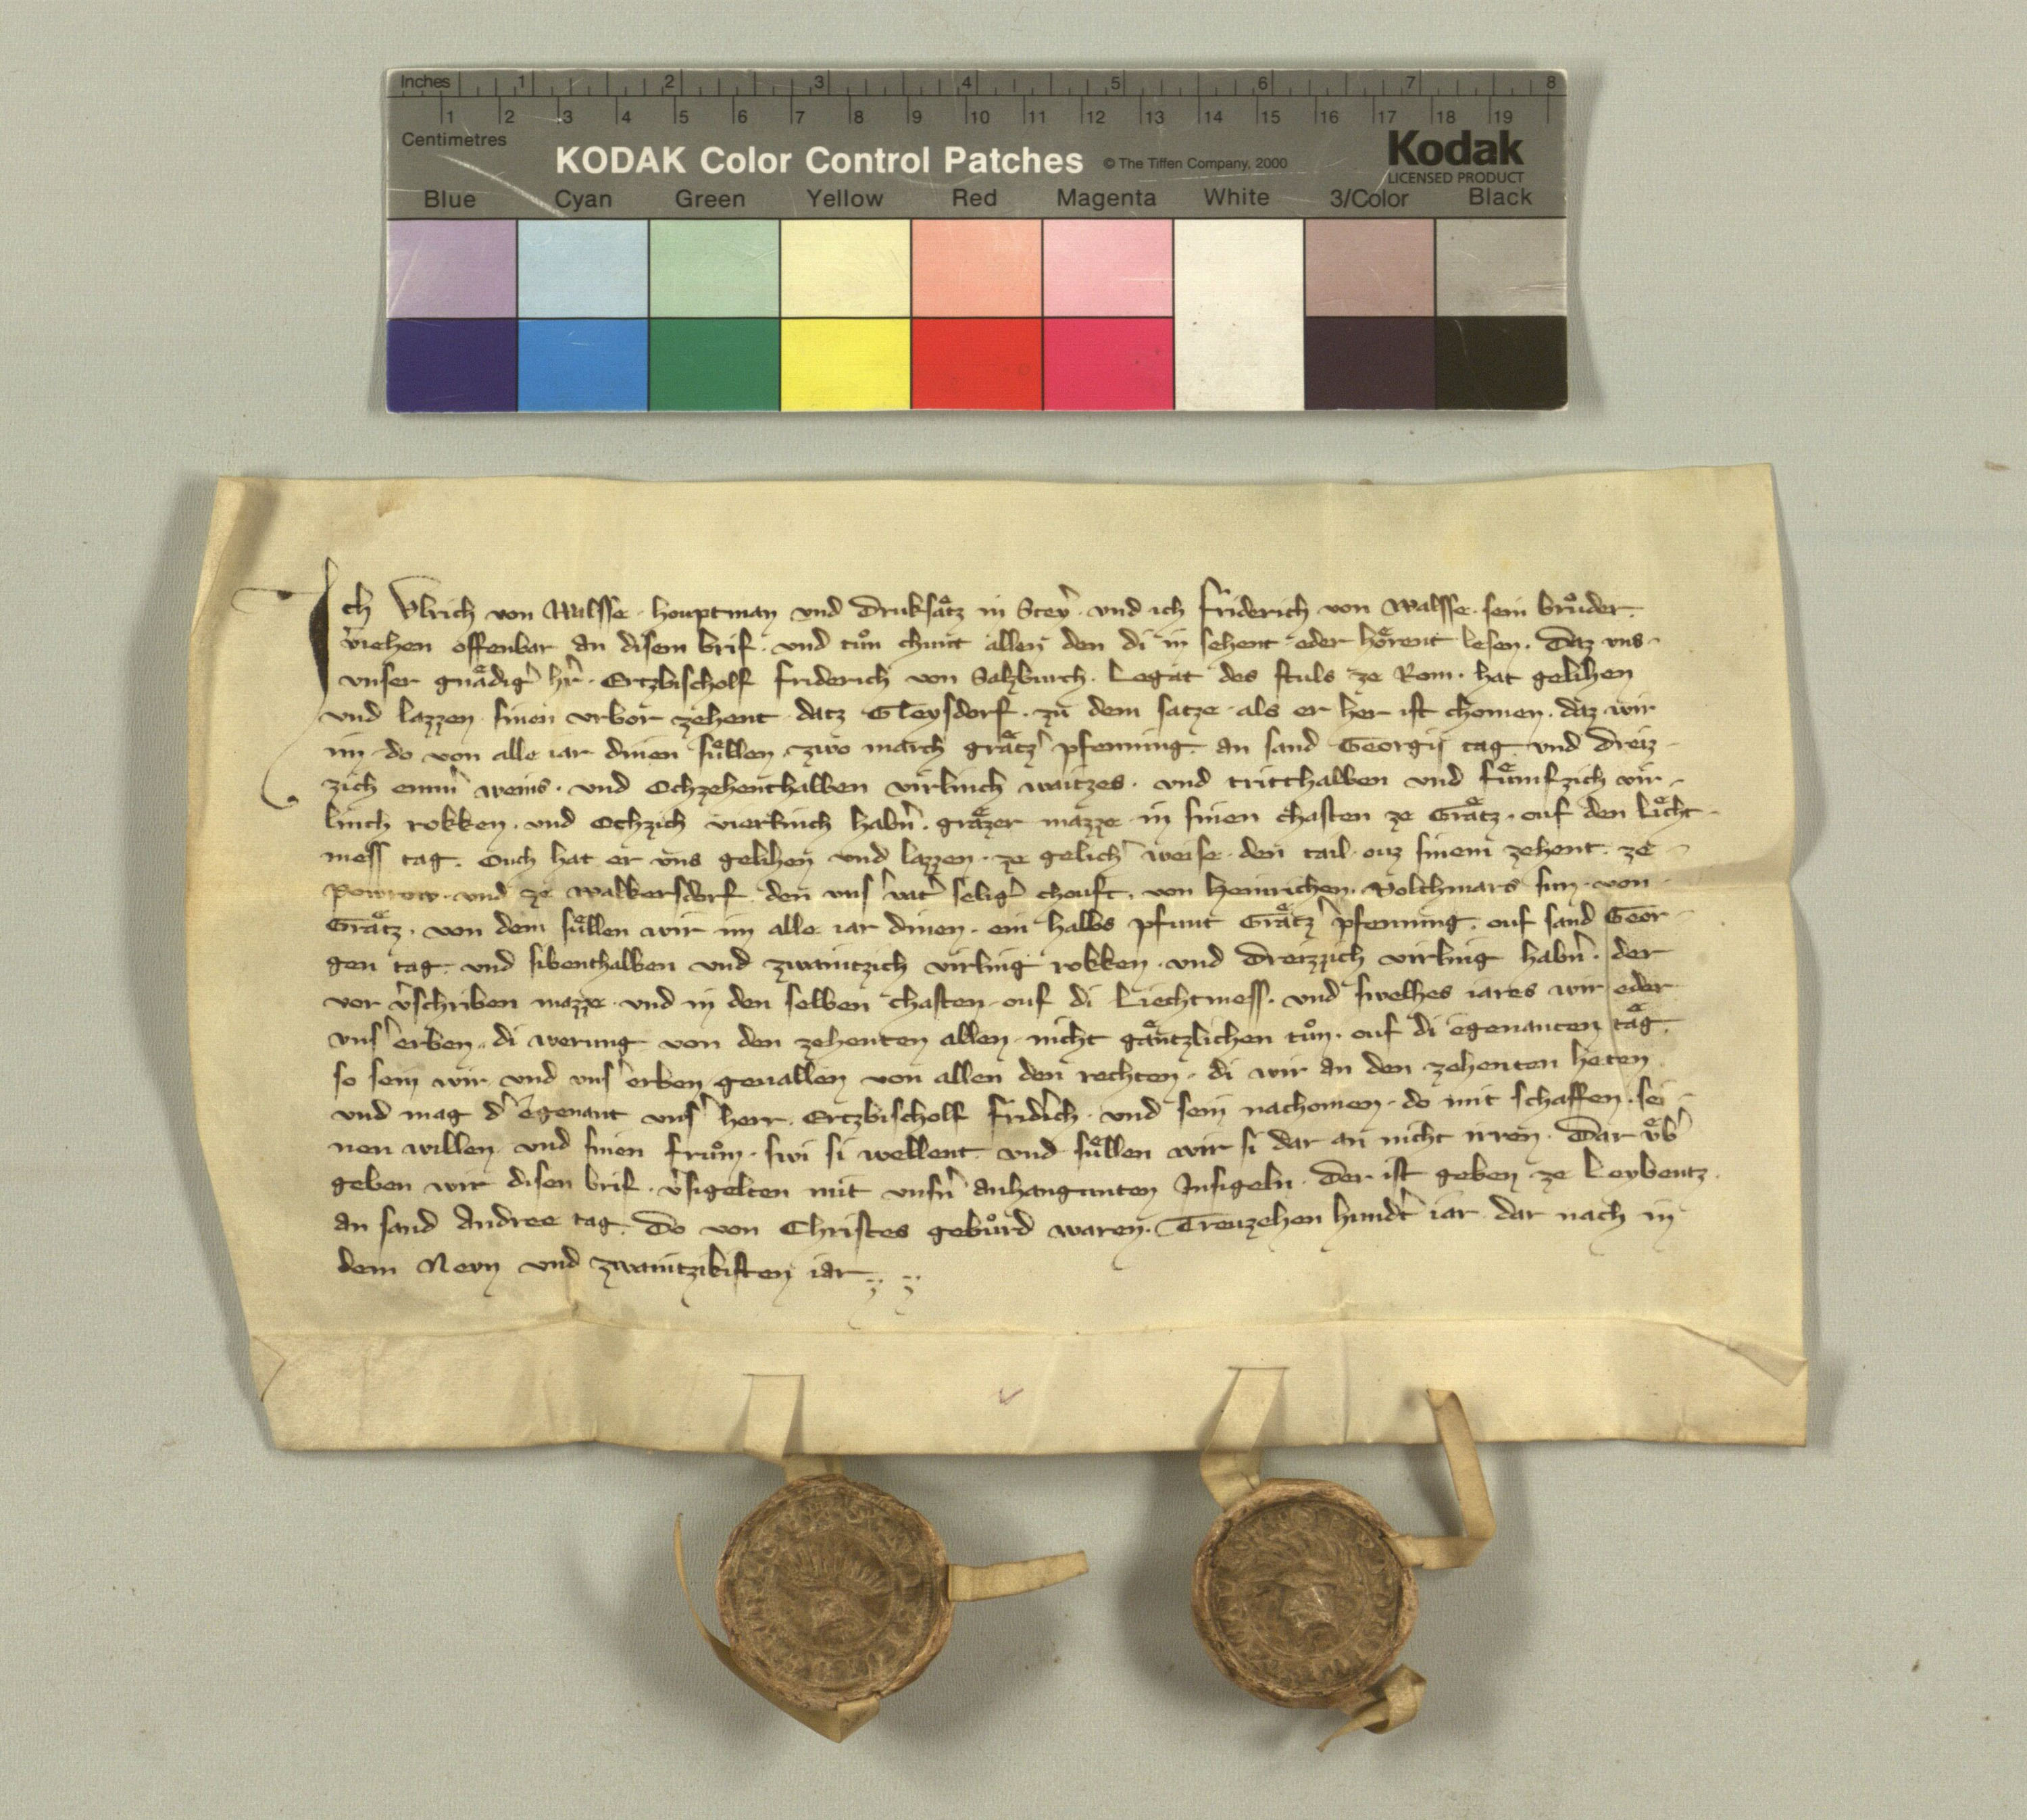 Inches 1 2 3 4 5 6 7 8
1 2 3 4 5 6 7 8 9 10 11 12 13 14 15 16 17 18 19
Centimetres
KODAK Color Control Patches © The Tiffen Company, 2000 Kodak
LICENSED PRODUCT
Blue Cyan Green Yellow Red Magenta White 3/Color Black
Ich Vlrich von Walsse · houptman vnd Druksaͤtz in Steyr̕ · vnd ich Friderich von Walsse · sein bruͦder ·
v̕iehen offenbar an disem brif · vnd tuͦn chunt allen den di in sehent oder hoͤrent lesen · Daz vns
vnser gnaͤdig̕ hr̕ · Ertzbischolf Friderich von Salzburch · Legat des stuls ze Rom · hat gelihen
vnd lazzen sinen vrbor zehent datz Gleysdorf · zu dem satze als er her ist chomen · daz wir
im do von alle iar dinen suͤllen zwo march graͤtz̕ pfenning an sand Georgij tag vnd dreiz-
zich emm̕ weins · vnd Ochzehenthalben virlinch waitzes · vnd tritthalben vnd fuͤmfzich vir-
linch rokken · vnd Ochzich vierlinch habn̕ · graͤzer mazze in sinen chasten ze Graͤtz · ouf den Liͤcht-
mess tag · Ouch hat er vns gelihen vnd lazzen · ze gelich̕ weise den tail ouz sinem zehent · ze
powrow · vnd ze Walkersdorf den vns̕ vat̕ selig̕ chouft · von Heinrichen · Volchmars sun von
Graͤtz · von dem suͤllen wir im alle iar dinen · ein halbs pfunt Graͤtz̕ pfenning · ouf sand Geor-
gen tag · vnd sibenthalben vnd zwaintzich virling rokken · vnd dreizzich virling habn̕ · der
vor v̕schriben mazze · vnd in den selben chasten ouf di Liechtmess · vnd swelhes iares wir oder
vns̕ erben · di werung von den zehenten allen nicht gaͤntzlichen tuͦn · ouf di egenanten taͤg
so sein wir vnd vns̕ erben geuallen von allen den rechten · di wir an den zehenten heten
vnd mag d̕ egenant vns̕ herr · Ertzbischolf Frid̕ich · vnd sein nachomen · do mit schaffen · sei-
nen willen vnd sinen fruͦm · swi si wellent vnd suͤllen wir si dar an nicht irren · Dar vͤb̕
geben wir disen brif · v̕sigelten mit vnsn̕ anhangunten Insigeln · Der ist geben ze Leybentz ·
an sand Andree tag · Do von Christes gebuͦrd waren · Treuzehen hund̕t iar dar nach in
dem Neun vnd zwaintzikisten iar